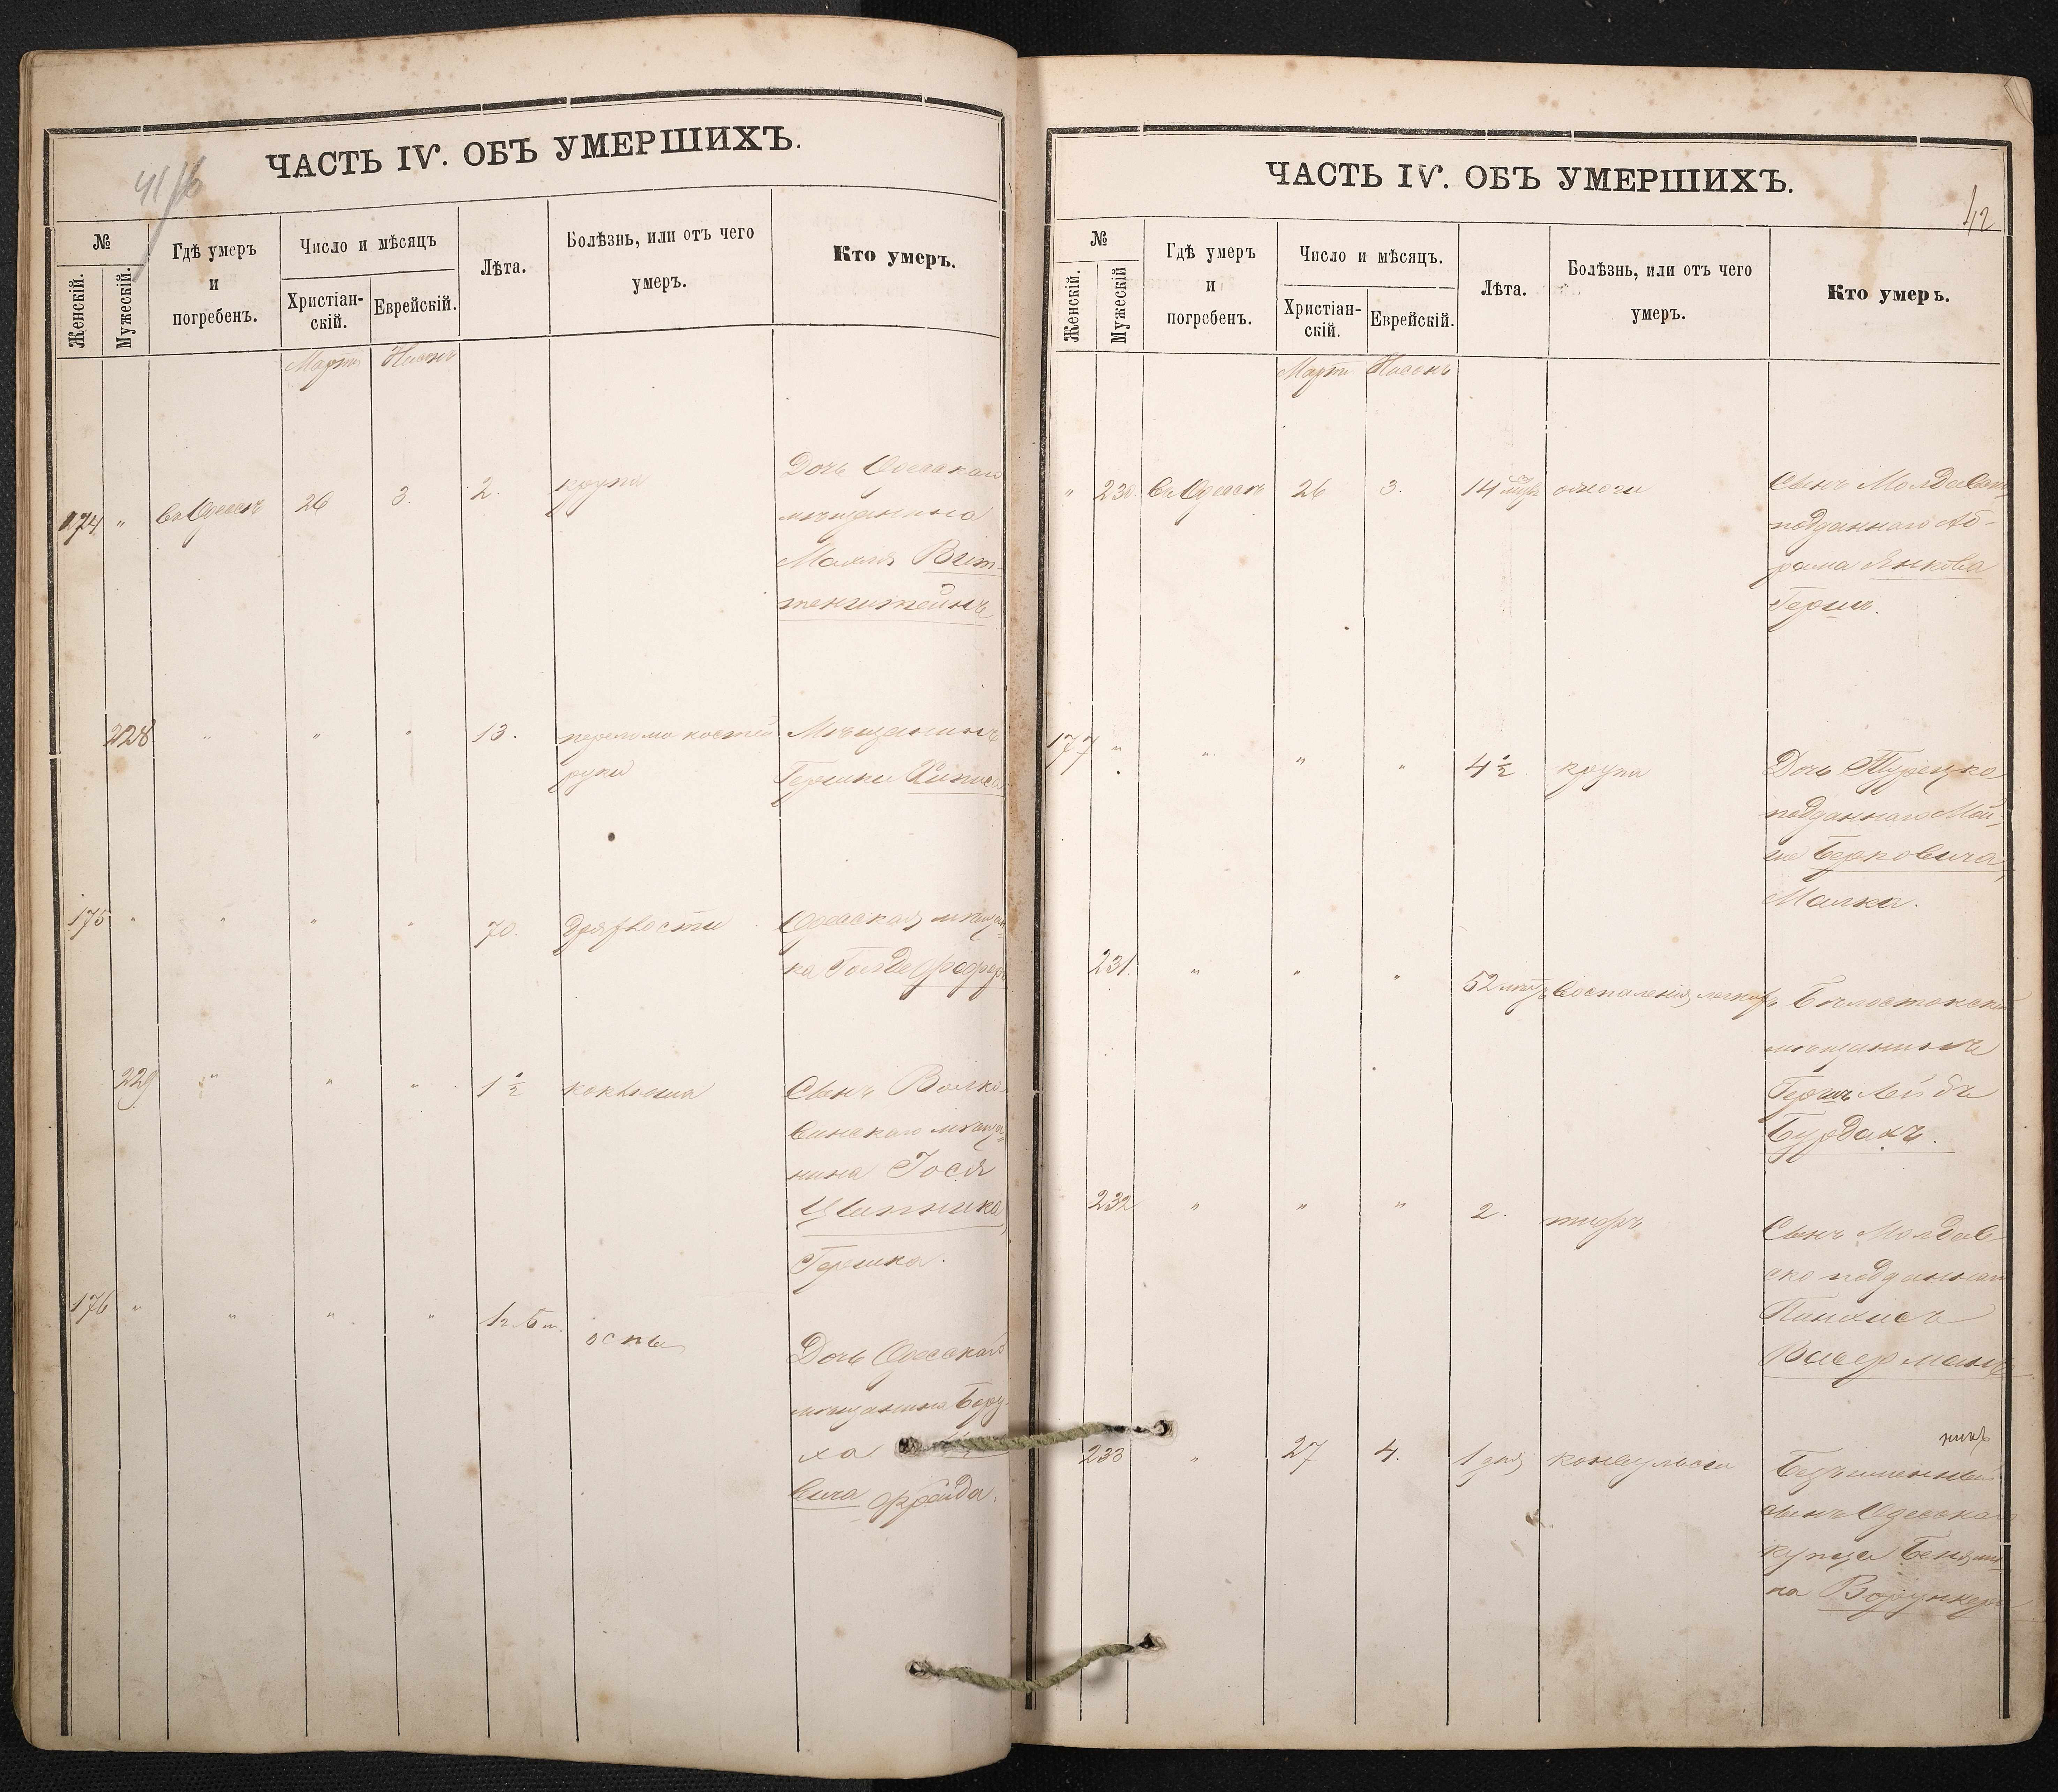 ЧАСТЬ IV. ОБЪ УМЕРШИХЪ.
№
Женскій.
Мужескій.
Гдѣ умеръ
и
погребенъ.
Число и мѣсяцъ
Христіан-
скій.
Еврейскій.
Лѣта.
Болѣзнь, или отъ чего
умеръ.
Кто умеръ.
Мартъ Нисонъ
174 " Въ Одессѣ 26 3. 2. крупа
Дочь Одесскаго
мѣщанина
Вит-
тенштейнъ
228 " " " 13. перелома костей
руки
Мѣщанинъ
Гершки
175 " " " " 70. Дряхлости
Одесская мѣщан-
ка
229 " " " 1½ коклюша
Сынъ Волко-
винскаго мѣща-
нина Іося
Цвитника,
Гершка.
176 " " " " оспы
Дочь Одесскаго
мѣщанина Беру-
ха
вича Фрейда.
ЧАСТЬ IV. ОБЪ УМЕРШИХЪ.
42
№
Женскій.
Мужескій
Гдѣ умеръ
и
погребенъ.
Число и мѣсяцъ.
Христіан-
скій.
Еврейскій.
Лѣта.
Болѣзнь, или отъ чего
умеръ.
Кто умеръ.
Мартъ Нисонъ
" 230. Въ Одессѣ 26 3. 14
Сынъ Молдавско-
подданнаго Аб-
рама Янкова
Гершъ.
177 " " " " 4½ крупа
Дочь Турецко
подданнаго Мой-
ше Берковича,
Малка.
231. " " " 52 лѣтъ Воспаленія легкихъ
Бѣлостокскій
мѣщанинъ
Гершъ Лейбъ
Бурдахъ.
232 " " " 2. тифъ
Сынъ Молдав
ско подданнаго
Пинхисъ
Васерманъ
233 " 27 4. 1 дня конвульсіи
Безъименный
сынъ Одесскаго
купца Беніями-
на